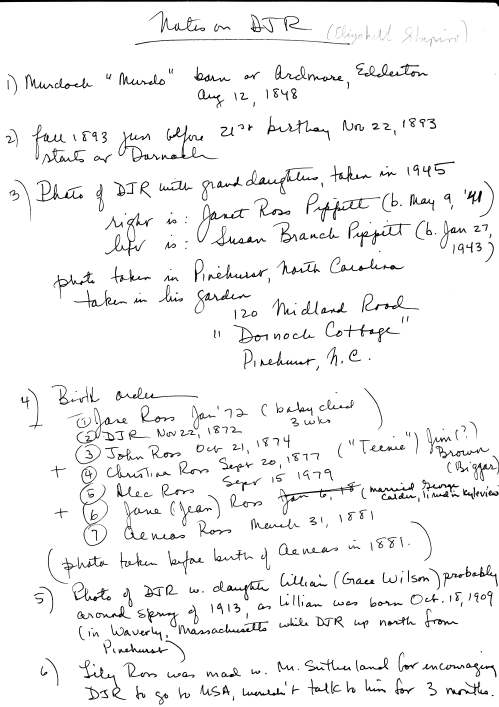 Notes on DJR (Elizabeth Shapiro)
1) Murdoch "Murdo" born at Ardmore, Edderton
Aug 12, 1848
2) fall 1893 just before 21st birthday Nov 22, 1893
starts at Dornoch
3) Photo of DJR with granddaughters, taken in 1945
right is: Janet Ross Pippitt (b. May 9, '41)
left is: Susan Branch Pippitt (b. Jan 27, 1943)
photo taken in Pinehurst, North Carolina
taken in his garden
120 Midland Road
"Dornoch Cottage"
Pinehurst, N.C.
4) Birth order
① Jane Ross Jan '72 (baby died 3 wks)
② DJR Nov 22, 1872
③ John Ross Oct 21, 1874
+ ④ Christina Ross Sept 20, 1877 ("Teenie") Jim(?) Brown (Biggar)
⑤ Alec Ross Sept 15 1979
+ ⑥ Jane (Jean) Ross Jan 6, 18 (married George Calder, lived in
⑦ Aeneas Ross March 31, 1881
(photo taken before birth of Aeneas in 1881.)
5) Photo of DJR w. daughter Lillian (Grace Wilson) probably
around Spring of 1913, as Lillian was born Oct. 18, 1909
(in Waverly, Massachusetts while DJR up north from
Pinehurst)
6) Lily Ross was mad w. Mr. Sutherland for encouraging
DJR to go to USA, wouldn't talk to him for 3 months.